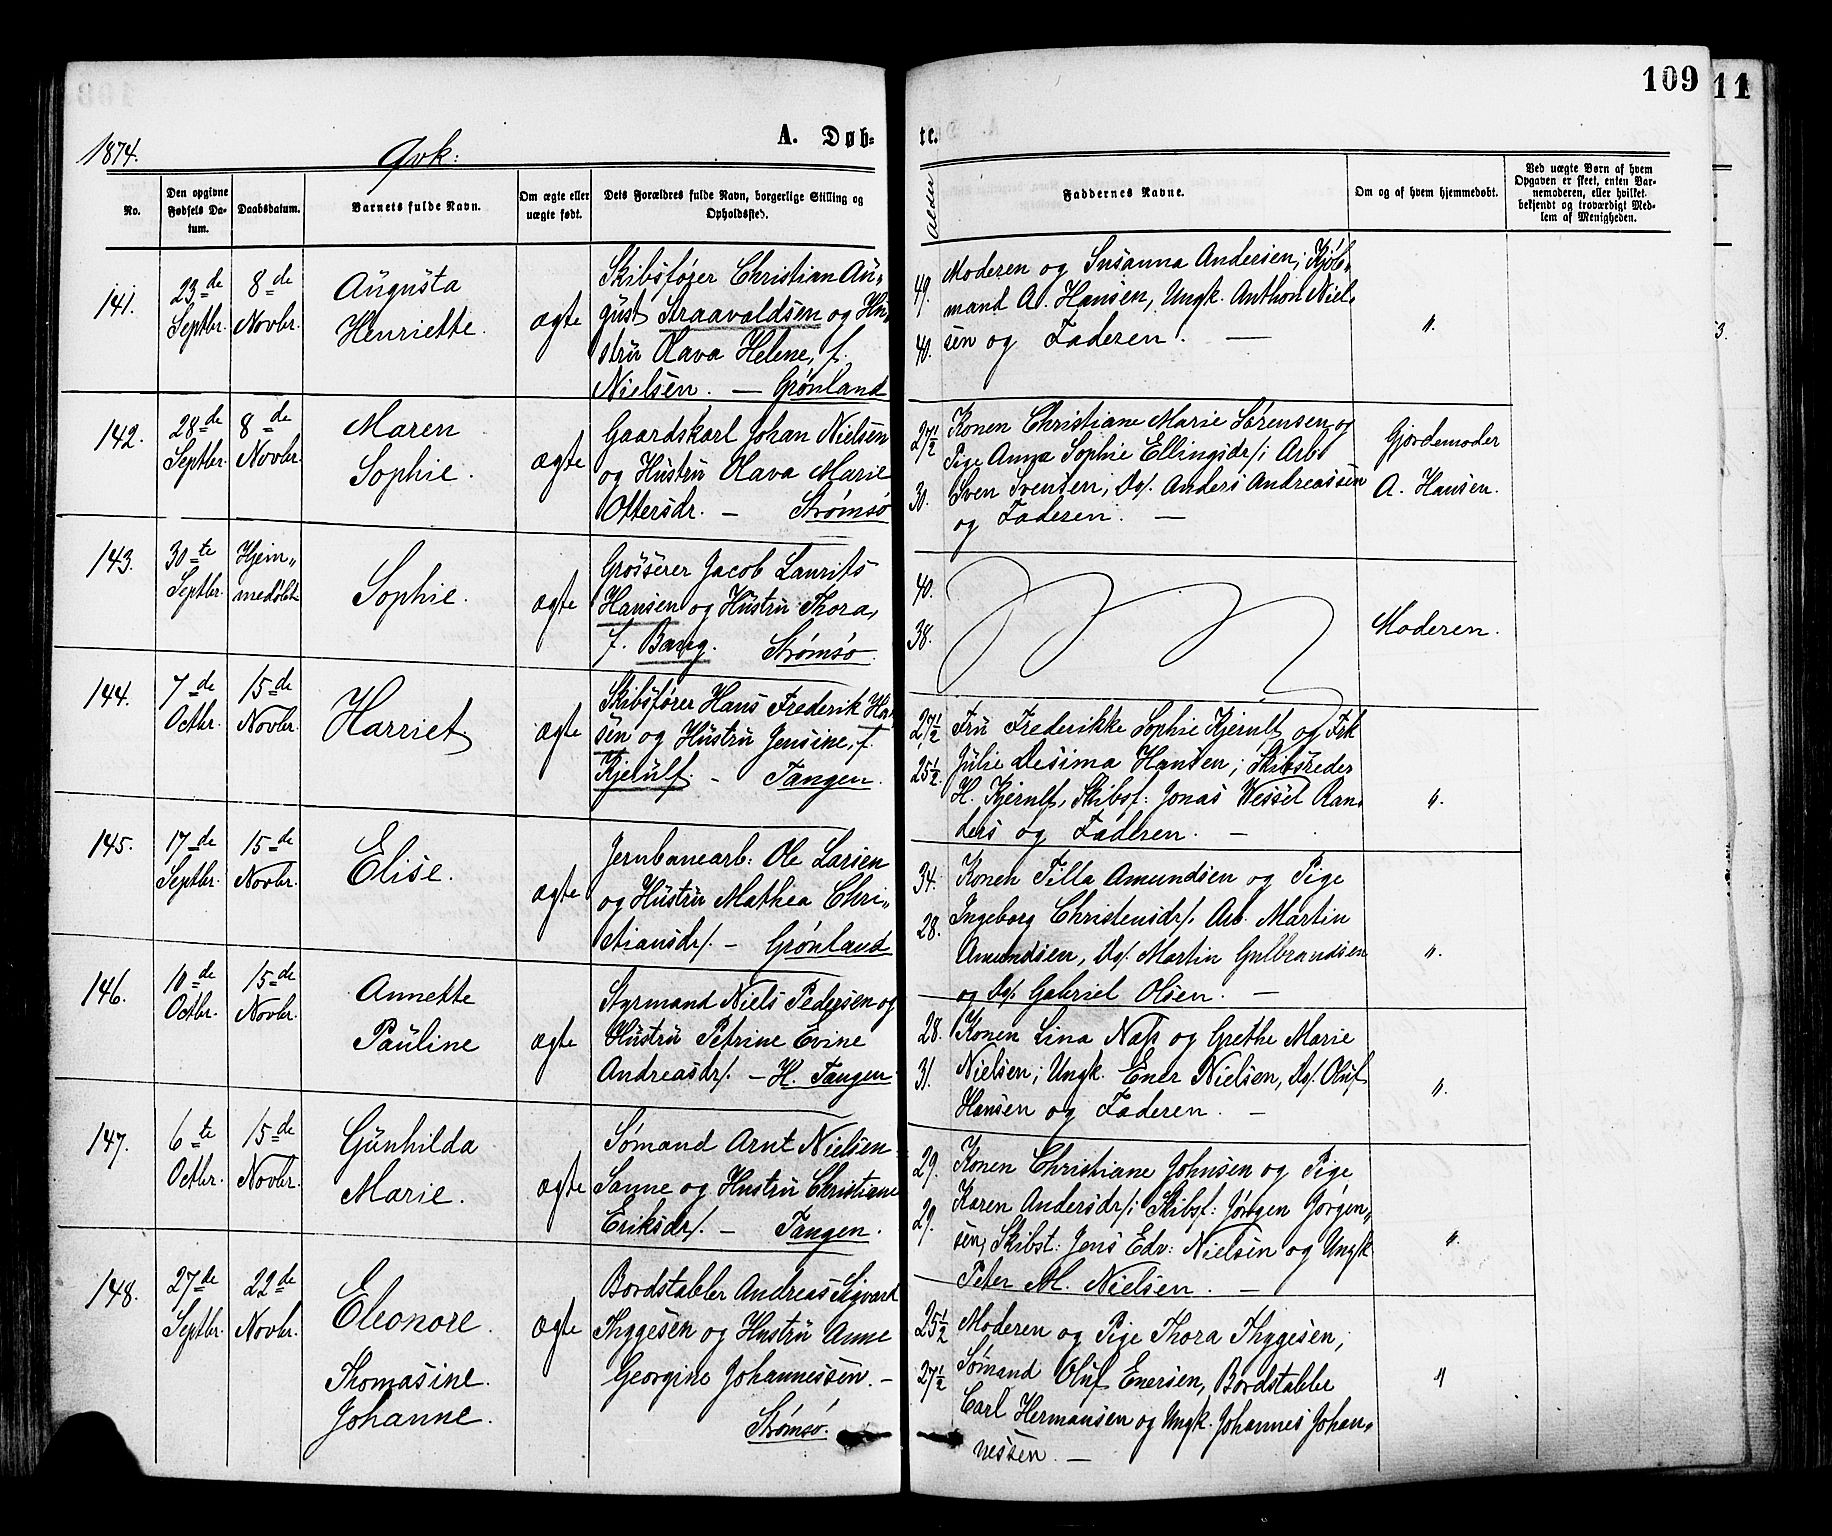 109
11
1874.
Qvk:
A. Døb-
te.
No.
Den opgivne Fødsels Da-tum.
Daabsdatum.
Barnets fulde Navn.
Om ægte eller uægte født.
Dets Forældres fulde Navn, borgerlige Stilling og Opholdssted.
Alder
Faddernes Navne.
Om og af hvem hjemmedøbt.
Ved uægte Børn af hvem Opgaven er skeet, enten Bar-nemoderen, eller hvilket bekjendt og troværdigt Med-lem af Menigheden.
141.
23de Septbr.
8de Novbr.
Augusta
Henriette.
ægte
Skibsfører Christian Au-
gust Straavaldsen og Hu-
stru Olava Helene, f.
Nielsen. — Grønland
49.
40.
Moderen og Susanna Andersen; Kjøb-
mand A. Hansen, Ungk. Anthon Niel-
sen og Faderen. —
"
142.
28de Septbr.
8de Novbr.
Maren
Sophie.
ægte
Gaardskarl Johan Nielsen
og Hustru Olava Marie
Ottersdr. — Strømsø
27½
30.
Konen Christiane Marie Sørensen og
Pige Anna Sophie Ellingsdr/; Arb
Sven Svensen, Do/. Anders Andreassen
og Faderen. —
Gjordemoder
A. Hansen.
143.
30te Septbr.
Hjem-
medøbt
Sophie.
ægte
Grosserer Jacob Laurits
Hansen og Hustru Thora,
f. Bang. Strømsø.
40.
38.
Moderen.
144.
7de Octbr.
15de Novbr.
Harriet
ægte
Skibsfører Hans Frederik Han
sen og Hustru Jensine, f.
Kjerulf. - Tangen.
27½
25½
Fru Frederikke Sophie Kjerulf og Frk
Julie Desima Hansen; Skibsreder
H. Kjerulf, Skibsf: Jonas Wessel Ran-
ders og Faderen. —
"
145.
17de Septbr.
15de Novbr.
Elise.
ægte
Jernbanearb: Ole Larsen
og Hustru Mathea Chri-
stiansdr/. - Grønland
34.
28.
Konen Tilla Amundsen og Pige
Ingeborg Christensdr/. Arb. Martin
Amundsen, Do/. Martin Gulbrandsen
og Do/. Gabriel Olsen. —
"
146.
10de Octbr.
15de Novbr.
Annette
Pauline
ægte
Styrmand Niels Pedersen og
Hustru Petrine Evine
Andreasdr/. - H. Tangen
28.
31.
Konen Lina Næss og Grethe Marie
Nielsen; Ungk. Ener Nielsen, Do/. Oluf
Hansen og Faderen. —
"
147.
6te Octbr.
15de Novbr.
Gunhilda
Marie.
ægte
Sømand Arnt Nielsen
Sanne og Hustru Christiane
Eriksdr/. - Tangen.
29.
29.
Konen Christiane Johnsen og Pige
Karen Andersdr/; Skibsf: Jørgen Jørgen-
sen, Skibst: Jens Edv: Nielsen og Ungk
Peter M. Nielsen. —
"
148.
27de Septbr.
22de Novbr.
Eleonore.
Thomasine.
Johanne.
ægte
Bordstabler Andreas Sigvard
Thygesen og Hustru Anne
Georgine Johannessen. —
Strømsø.
25½
27½
Moderen og Pige Thora Thygesen;
Sømand Oluf Enersen, Bordstabler
Carl Hermansen og Ungk. Johannes Johan-
nessen. —
"
3.